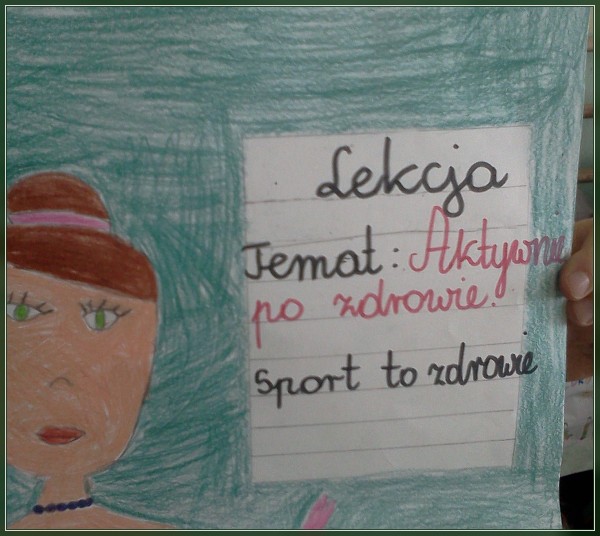 Lekcja
Temat: Aktywnie
po zdrowie.
Sport to zdrowie